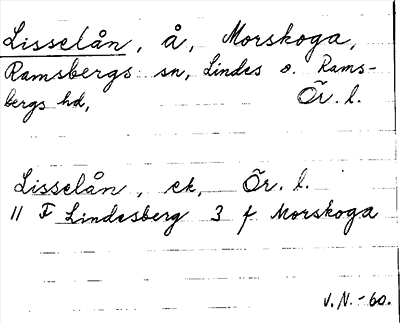 Lisselån, å, Morskoga,
Ramsbergs sn, Lindes o. Rams-
bergs hd, Ör. l.
Lisselån, ek, Ör. l.
11 F Lindesberg 3 f Morskoga
V. N. -60.